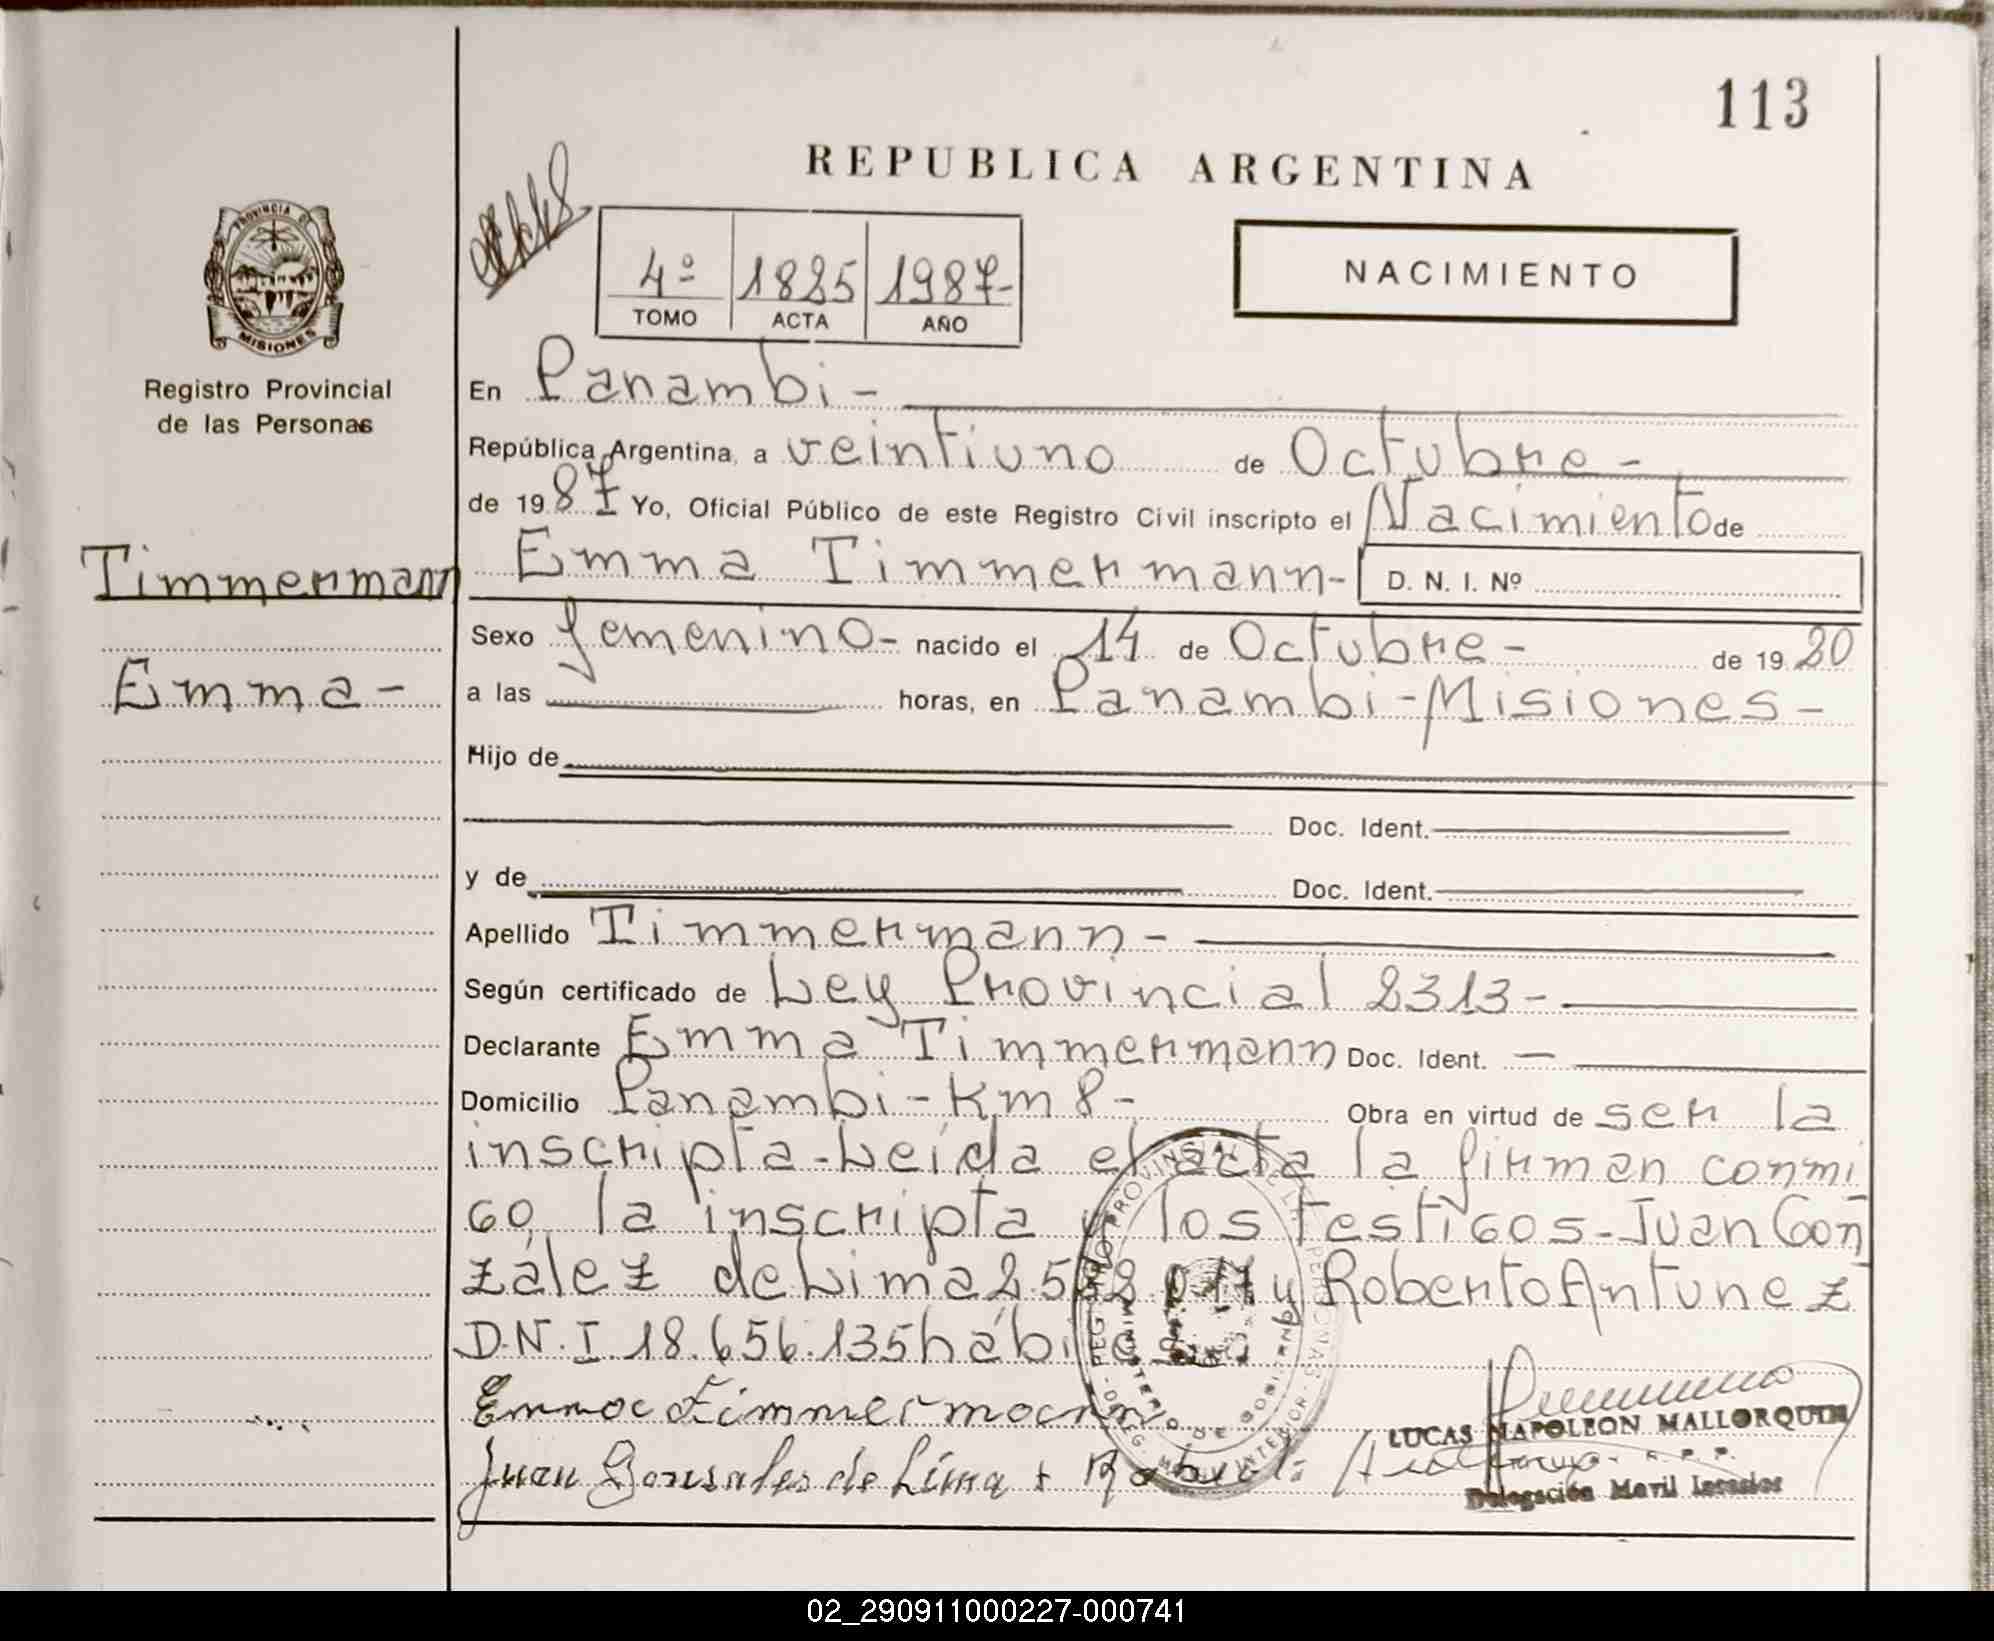 113
REPUBLICA ARGENTINA
PROVINCIA DE
MISIONES
Registro Provincial
de las Personas
4º 1825 1987-
TOMO ACTA AÑO
NACIMIENTO
En Panambi-
República Argentina, a veintiuno de Octubre-
de 1987 Yo, Oficial Público de este Registro Civil inscripto el Nacimiento de
Timmermann
Emma Timmermann- D. N. I. Nº
Sexo femenino- nacido el 14 de Octubre- de 19
Emma-
a las horas, en Panambi-Misiones-
Hijo de
Doc. Ident.
y de Doc. Ident.
Apellido Timmermann-
Según certificado de Ley Provincial 2313-
Declarante Emma Timmermann Doc. Ident. —
Domicilio Panambi-Km 8- Obra en virtud de ser la
inscripta-Leída el acta la firman conmi
go, la inscripta y los testigos-Juan Gon
zález de Lima y Roberto Antunez
D.N.I. 18.656.135 hábiles
Emma Timmermann
LUCAS NAPOLEON MALLORQUIN
Juan Gonsales de Lima +
Delegación Movil Interior
02_290911000227-000741